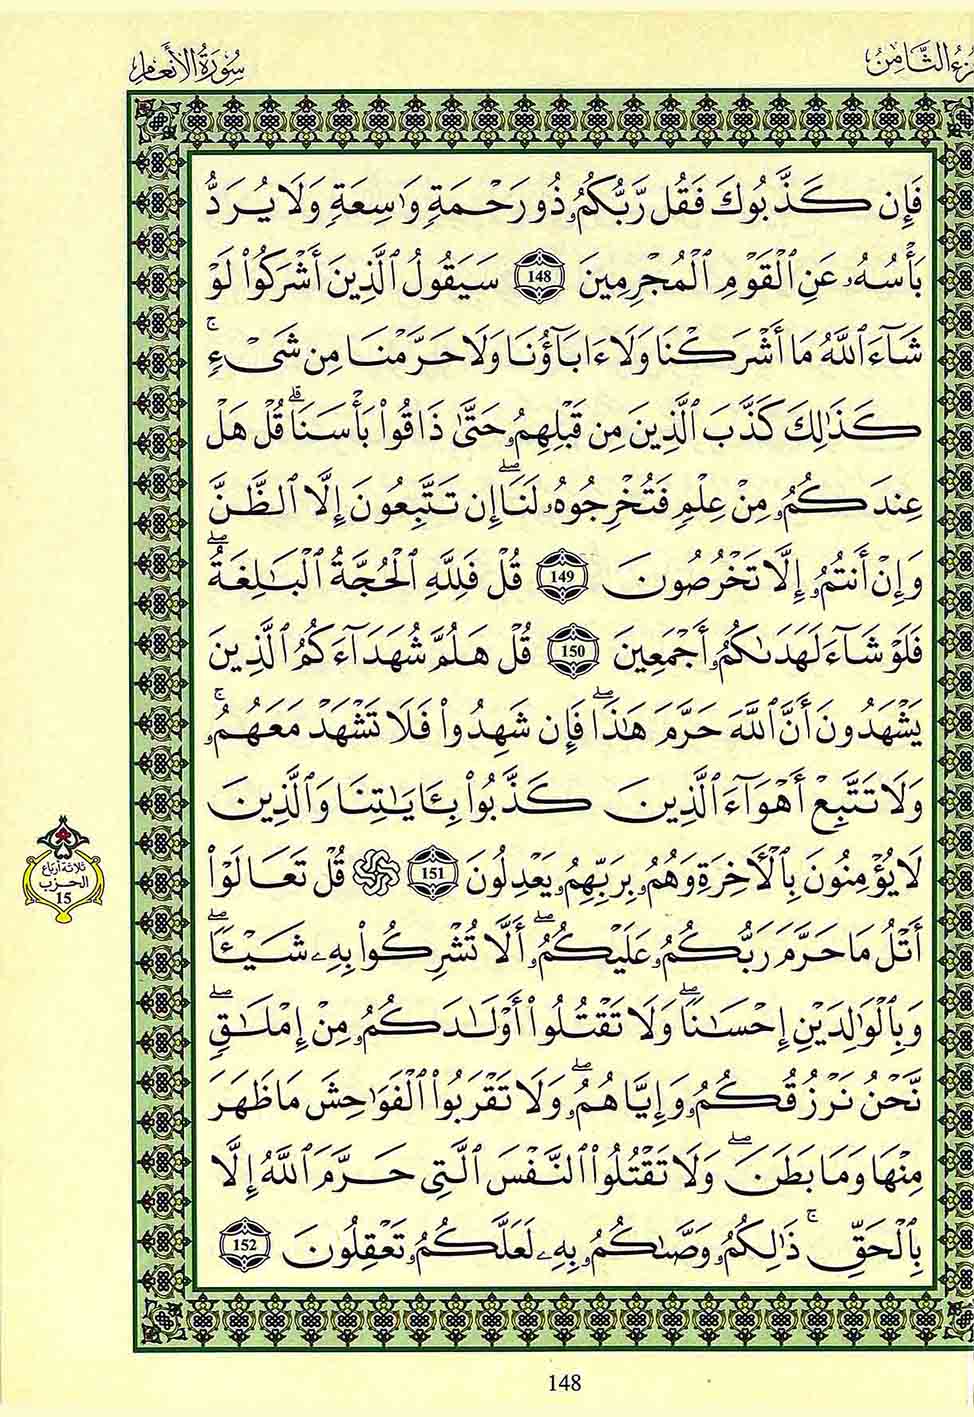 سُورَةُ الأَنْعَامِ
الثَّامِنُ
فَإِن كَذَّبُوكَ فَقُل رَّبُّكُمُۥ ذُو رَحْمَةٍ وَٰسِعَةٍ وَلَا يُرَدُّ
بَأْسُهُۥ عَنِ ٱلْقَوْمِ ٱلْمُجْرِمِينَ 148 سَيَقُولُ ٱلَّذِينَ أَشْرَكُوا۟ لَوْ
شَآءَ ٱللَّهُ مَا أَشْرَكْنَا وَلَا ءَابَآؤُنَا وَلَا حَرَّمْنَا مِن شَىْءٍ ۚ
كَذَٰلِكَ كَذَّبَ ٱلَّذِينَ مِن قَبْلِهِمُۥ حَتَّىٰ ذَاقُوا۟ بَأْسَنَا ۗ قُلْ هَلْ
عِندَكُمُۥ مِنْ عِلْمٍ فَتُخْرِجُوهُۥ لَنَا ۖ إِن تَتَّبِعُونَ إِلَّا ٱلظَّنَّ
وَإِنْ أَنتُمُۥ إِلَّا تَخْرُصُونَ 149 قُلْ فَلِلَّهِ ٱلْحُجَّةُ ٱلْبَٰلِغَةُ ۖ
فَلَوْ شَآءَ لَهَدَىٰكُمُۥ أَجْمَعِينَ 150 قُلْ هَلُمَّ شُهَدَآءَكُمُ ٱلَّذِينَ
يَشْهَدُونَ أَنَّ ٱللَّهَ حَرَّمَ هَٰذَا ۖ فَإِن شَهِدُوا۟ فَلَا تَشْهَدْ مَعَهُمُۥ ۚ
وَلَا تَتَّبِعْ أَهْوَآءَ ٱلَّذِينَ كَذَّبُوا۟ بِـَٔايَٰتِنَا وَٱلَّذِينَ
لَا يُؤْمِنُونَ بِٱلْأَخِرَةِ وَهُمُۥ بِرَبِّهِمُۥ يَعْدِلُونَ 151 ۞ قُلْ تَعَالَوْا۟
أَتْلُ مَا حَرَّمَ رَبُّكُمُۥ عَلَيْكُمُۥ ۖ أَلَّا تُشْرِكُوا۟ بِهِۦ شَيْـًٔا ۖ
وَبِٱلْوَٰلِدَيْنِ إِحْسَٰنًا ۖ وَلَا تَقْتُلُوا۟ أَوْلَٰدَكُمُۥ مِنْ إِمْلَٰقٍ ۖ
نَّحْنُ نَرْزُقُكُمُۥ وَإِيَّاهُمُۥ ۖ وَلَا تَقْرَبُوا۟ ٱلْفَوَٰحِشَ مَا ظَهَرَ
مِنْهَا وَمَا بَطَنَ ۖ وَلَا تَقْتُلُوا۟ ٱلنَّفْسَ ٱلَّتِى حَرَّمَ ٱللَّهُ إِلَّا
بِٱلْحَقِّ ۚ ذَٰلِكُمُۥ وَصَّىٰكُمُۥ بِهِۦ لَعَلَّكُمُۥ تَعْقِلُونَ 152
ثلاثة أرباع
الحزب
15
148